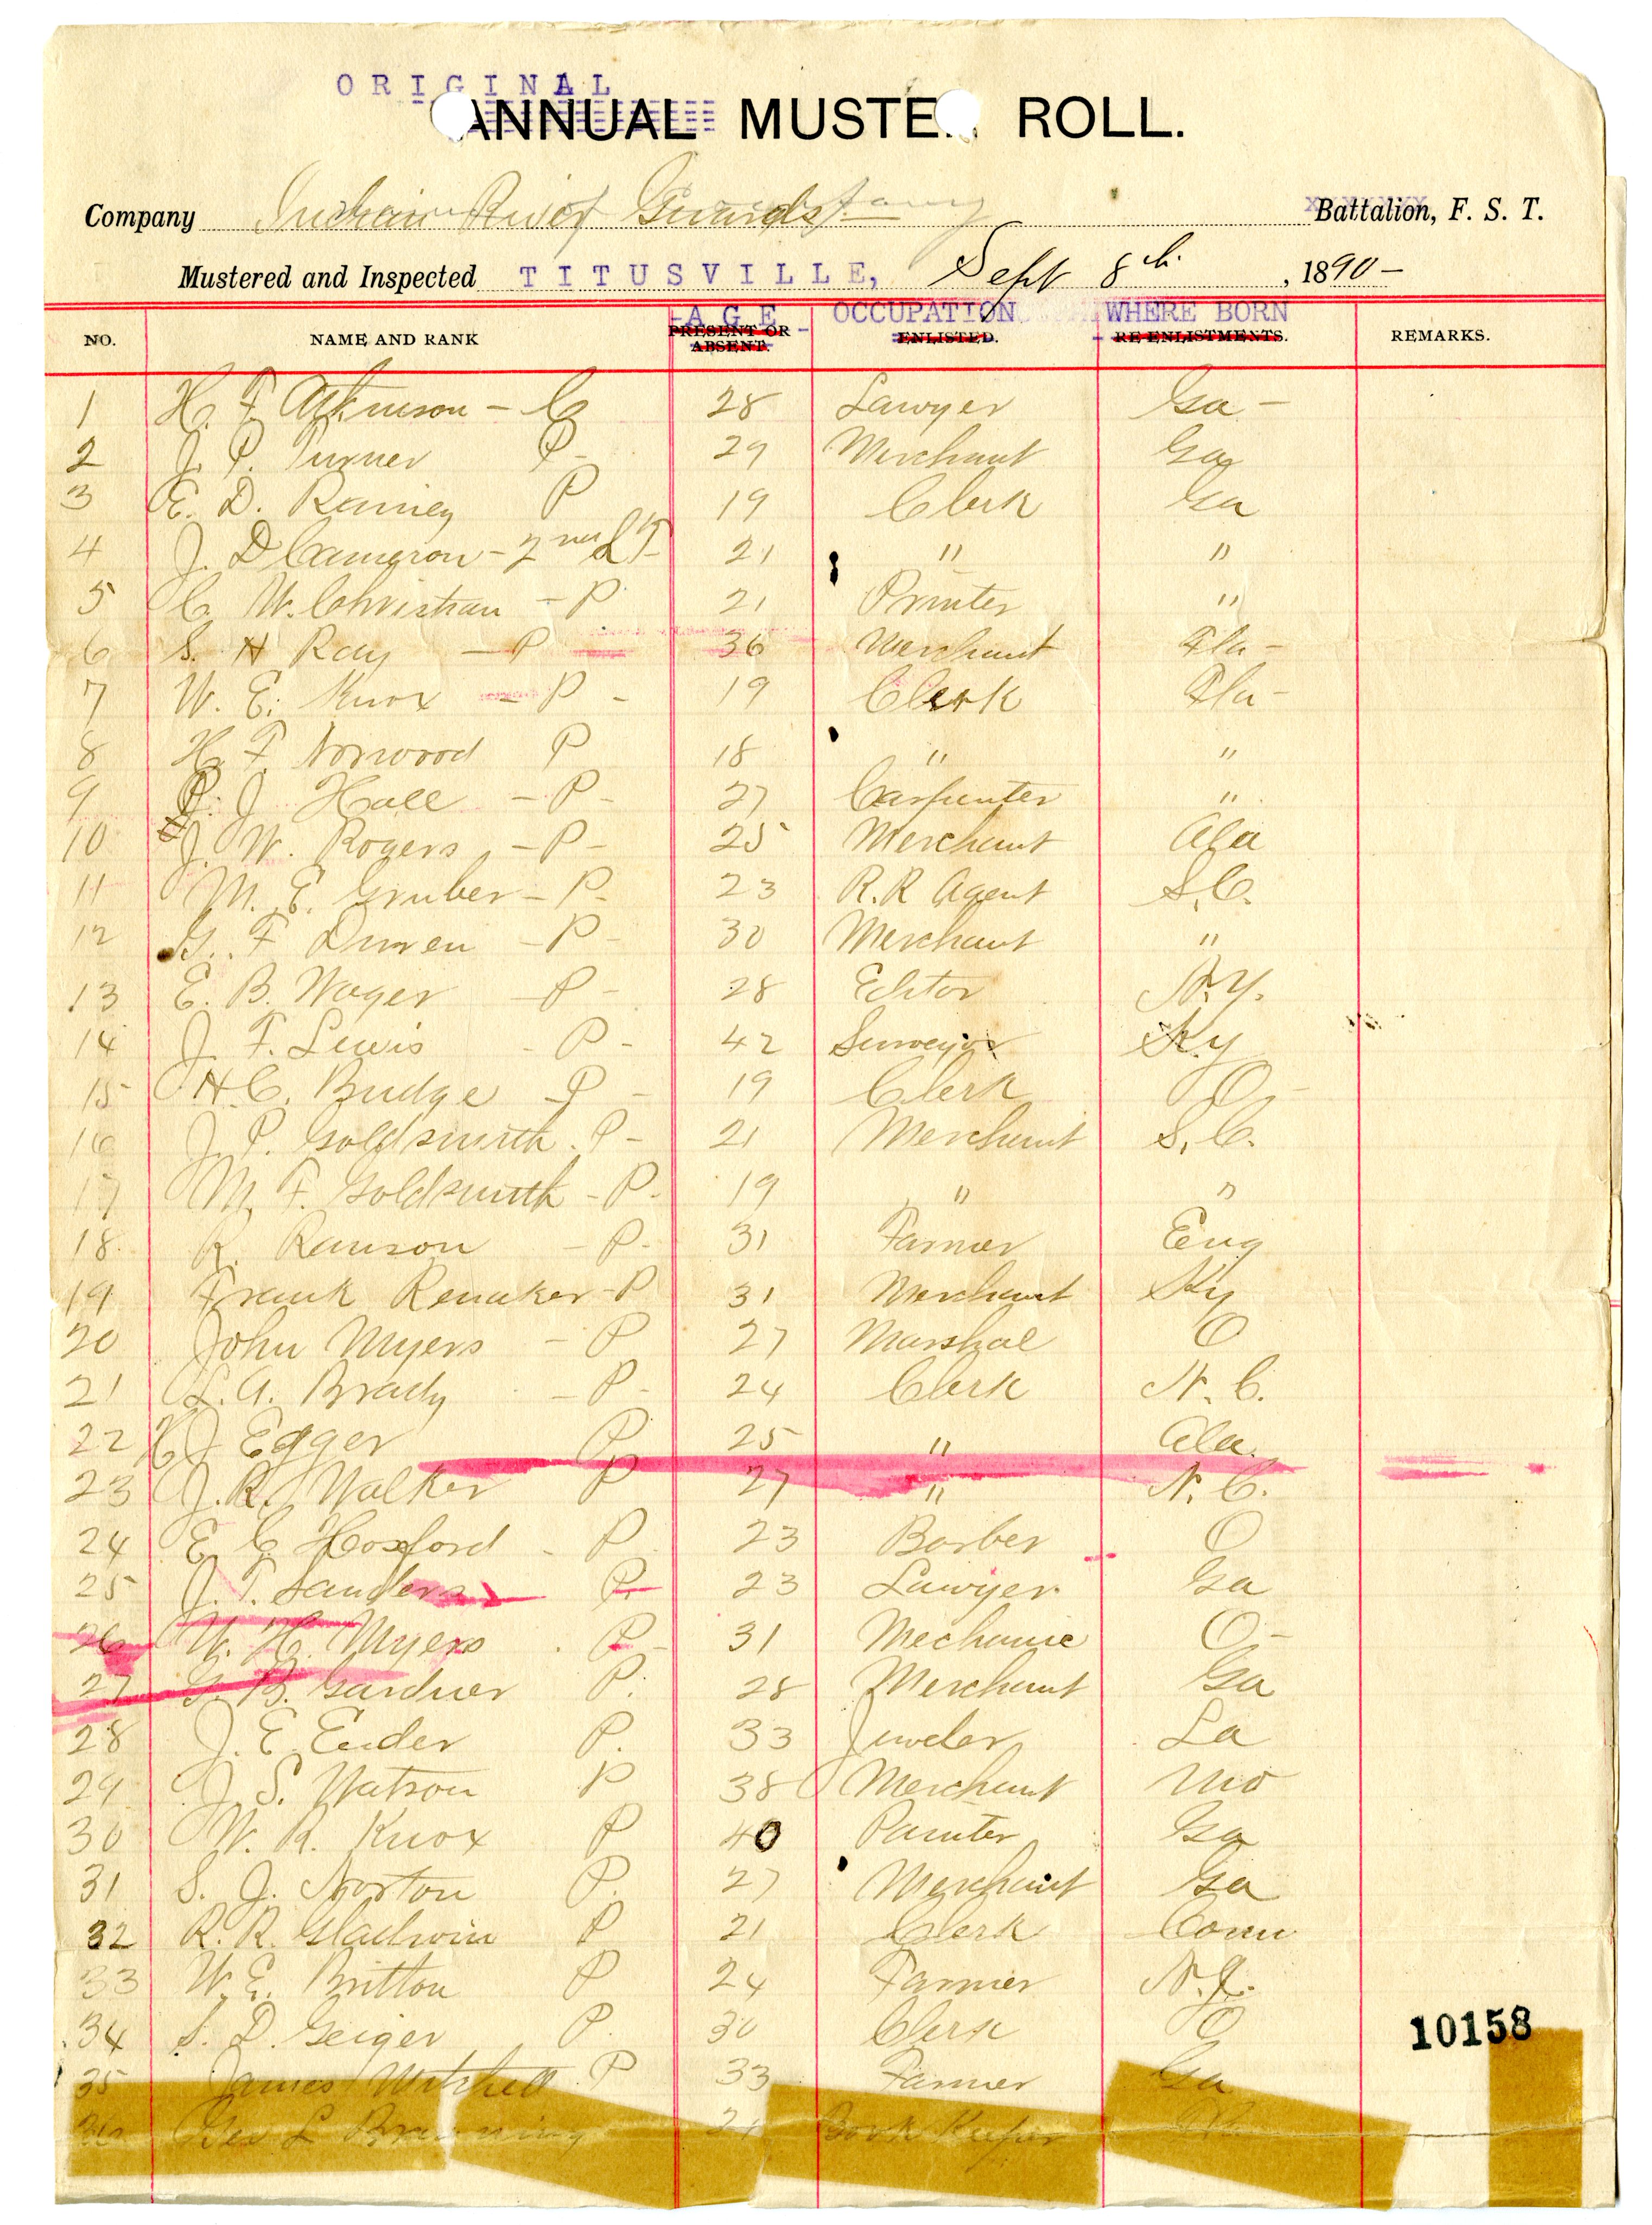 ORIGINAL
ANNUAL MUSTE ROLL.
Company Indian River Guards Battalion, F. S. T.
Mustered and Inspected TITUSVILLE, Sept 8th. , 1890 -
-AGE- OCCUPATION WHERE BORN
NO. NAME AND RANK PRESENT OR ABSENT. ENLISTED. RE-ENLISTMENTS. REMARKS.
1 H. F. Atkinson - C 28 Lawyer Ga -
2 J. P. Turner P - 29 Merchant Ga
3 E. D. Rainey P 19 Clerk Ga
4 J. D Cameron - 2nd LT 21 " "
5 C. W. Christian - P 21 Printer "
6 S. H Ray - P 36 Merchant Fla -
7 W. E. Knox - P - 19 Clerk Fla -
8 H. F. Norwood P 18 " "
9 J. Hall - P - 27 Carpenter "
10 J. W. Rogers - P - 25 Merchant Ala
11 M. E. Gruber - P - 23 R. R Agent S. C.
12 G. F Duren - P - 30 Merchant "
13 E. B. Wager - P - 28 Editor N. Y.
14 J. F. Lewis - P - 42 Surveyor Ky
15 H. C. Budge - P - 19 Clerk O -
16 J. P. Goldsmith. P - 21 Merchant S. C.
17 M. F. Goldsmith - P - 19 " "
18 R. Ranson - P - 31 Farmer Eng
19 Frank Renaker - P 31 Merchant Ky
20 John Myers - P 27 Marshal O
21 L. A. Brady - P - 24 Clerk N. C.
22 H J Egger P 25 " Ala.
23 J. R. Walker P 27 " N. C.
24 E. C. Hosford - P 23 Barber O
25 J. T. Sanders P. 23 Lawyer Ga
26 W. H. Myers. P - 31 Mechanic O -
27 G. B. Gardner P. 28 Merchant Ga
28 J. E. Ender P. 33 Juweler La
29 J. S. Watson P 38 Merchant Mo
30 W. R. Knox P 40 Painter Ga
31 S. J. Norton P. 27 Merchant Ga
32 R. R. Gladwin P 21 Clerk Conn
33 W. E. Britton P 24 Farmer N. J.
34 S. D. Geiger P. 30 Clerk O
35 James Mitchell P 33 Farmer Ga
36 Geo L Branning 21 Book Keeper
10158